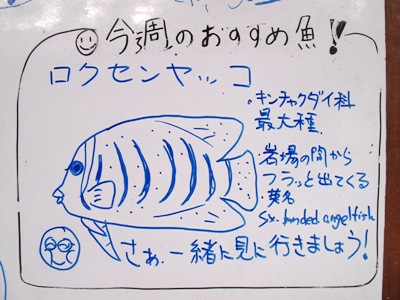 今週のおすすめ魚!!
ロクセンヤッコ
・キンチャクダイ科
最大種
・岩場の間から
フラッと出てくる
・英名
Six-banded angelfish
さぁ、一緒に見に行きましょう!